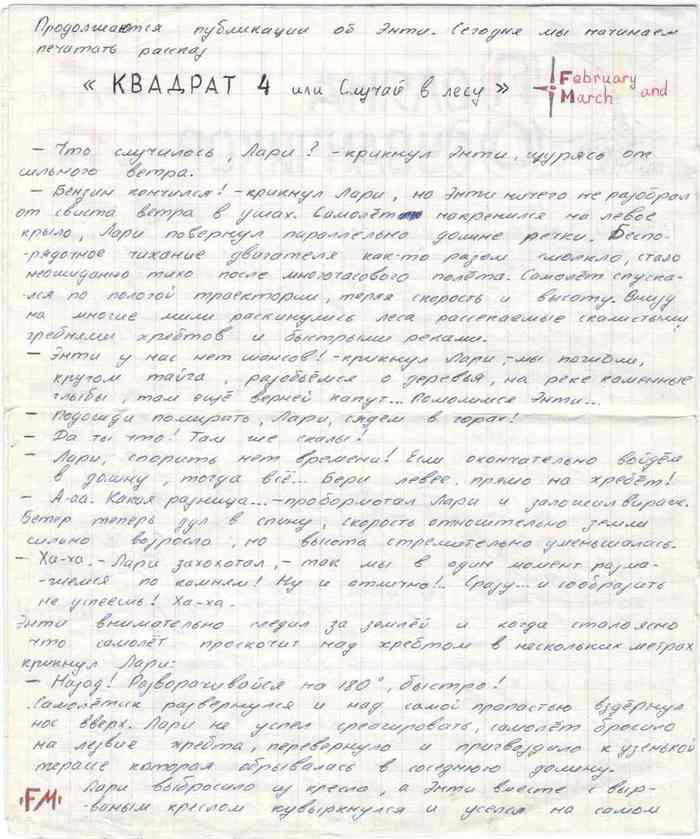 Продолжаются публикации об Энти. Сегодня мы начинаем
печатать рассказ
« КВАДРАТ 4 или Случай в лесу »
February and
March
— Что случилось, Лари? - крикнул Энти, щурясь от
сильного ветра.
— Бензин кончился! - крикнул Лари, но Энти ничего не разобрал
от свиста ветра в ушах. Самолёт накренился на левое
крыло, Лари повернул параллельно долине речки. Беспо-
-рядочное чихание двигателя как-то разом смолкло, стало
неожиданно тихо после многочасового полёта. Самолёт спуска-
-лся по пологой траектории, теряя скорость и высоту. Внизу
на многие мили раскинулись леса рассекаемые скалистыми
гребнями хребтов и быстрыми реками.
— Энти у нас нет шансов! - крикнул Лари, - мы погибли,
кругом тайга, разобьёмся о деревья, на реке каменные
глыбы, там ещё верней капут... Помолимся Энти...
— Подожди помирать, Лари, сядем в горах!
— Да ты что! Там же скалы!
— Лари, спорить нет времени! Если окончательно войдём
в долину, тогда всё... Бери левее, прямо на хребёт!
— А-аа. Какая разница... - пробормотал Лари и заложил вираж.
Ветер теперь дул в спину, скорость относительно земли
сильно возросла, но высота стремительно уменьшалась.
— Ха-ха. - Лари захохотал, - так мы в один момент разма-
-жемся по камням! Ну и отлично!.. Сразу... и сообразить
не успеешь! Ха-ха.
Энти внимательно следил за землёй и когда стало ясно
что самолёт проскочит над хребтом в нескольких метрах
крикнул Лари:
— Назад! Разворачивайся на 180°, быстро!
Самолётик развернулся и над самой пропастью вздёрнул
нос вверх. Лари не успел среагировать, самолёт бросило
на лезвие хребта, перевернуло и пригвоздило к узенькой
террасе которая обрывалась в соседнюю долину.
Лари выбросило из кресла, а Энти вместе с выр-
-ваным креслом кувыркнулся и уселся на самом
'FM'